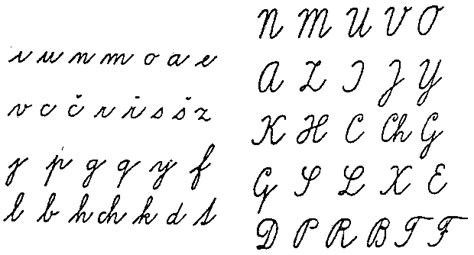 i u n m o a e
v c č r ř s š z
j p g q y f
l b h ch k d t
N M U V O
A Z I J Y
K H C Ch G
G S L X E
D P R B T F